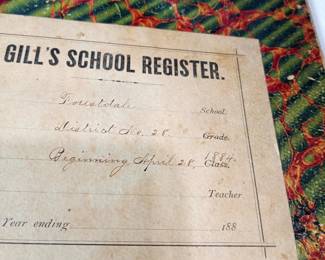 GILL'S SCHOOL REGISTER.
Forestdale School.
District No. 28. Grade.
Beginning April 28, 1884. Class.
Teacher
Year ending 188